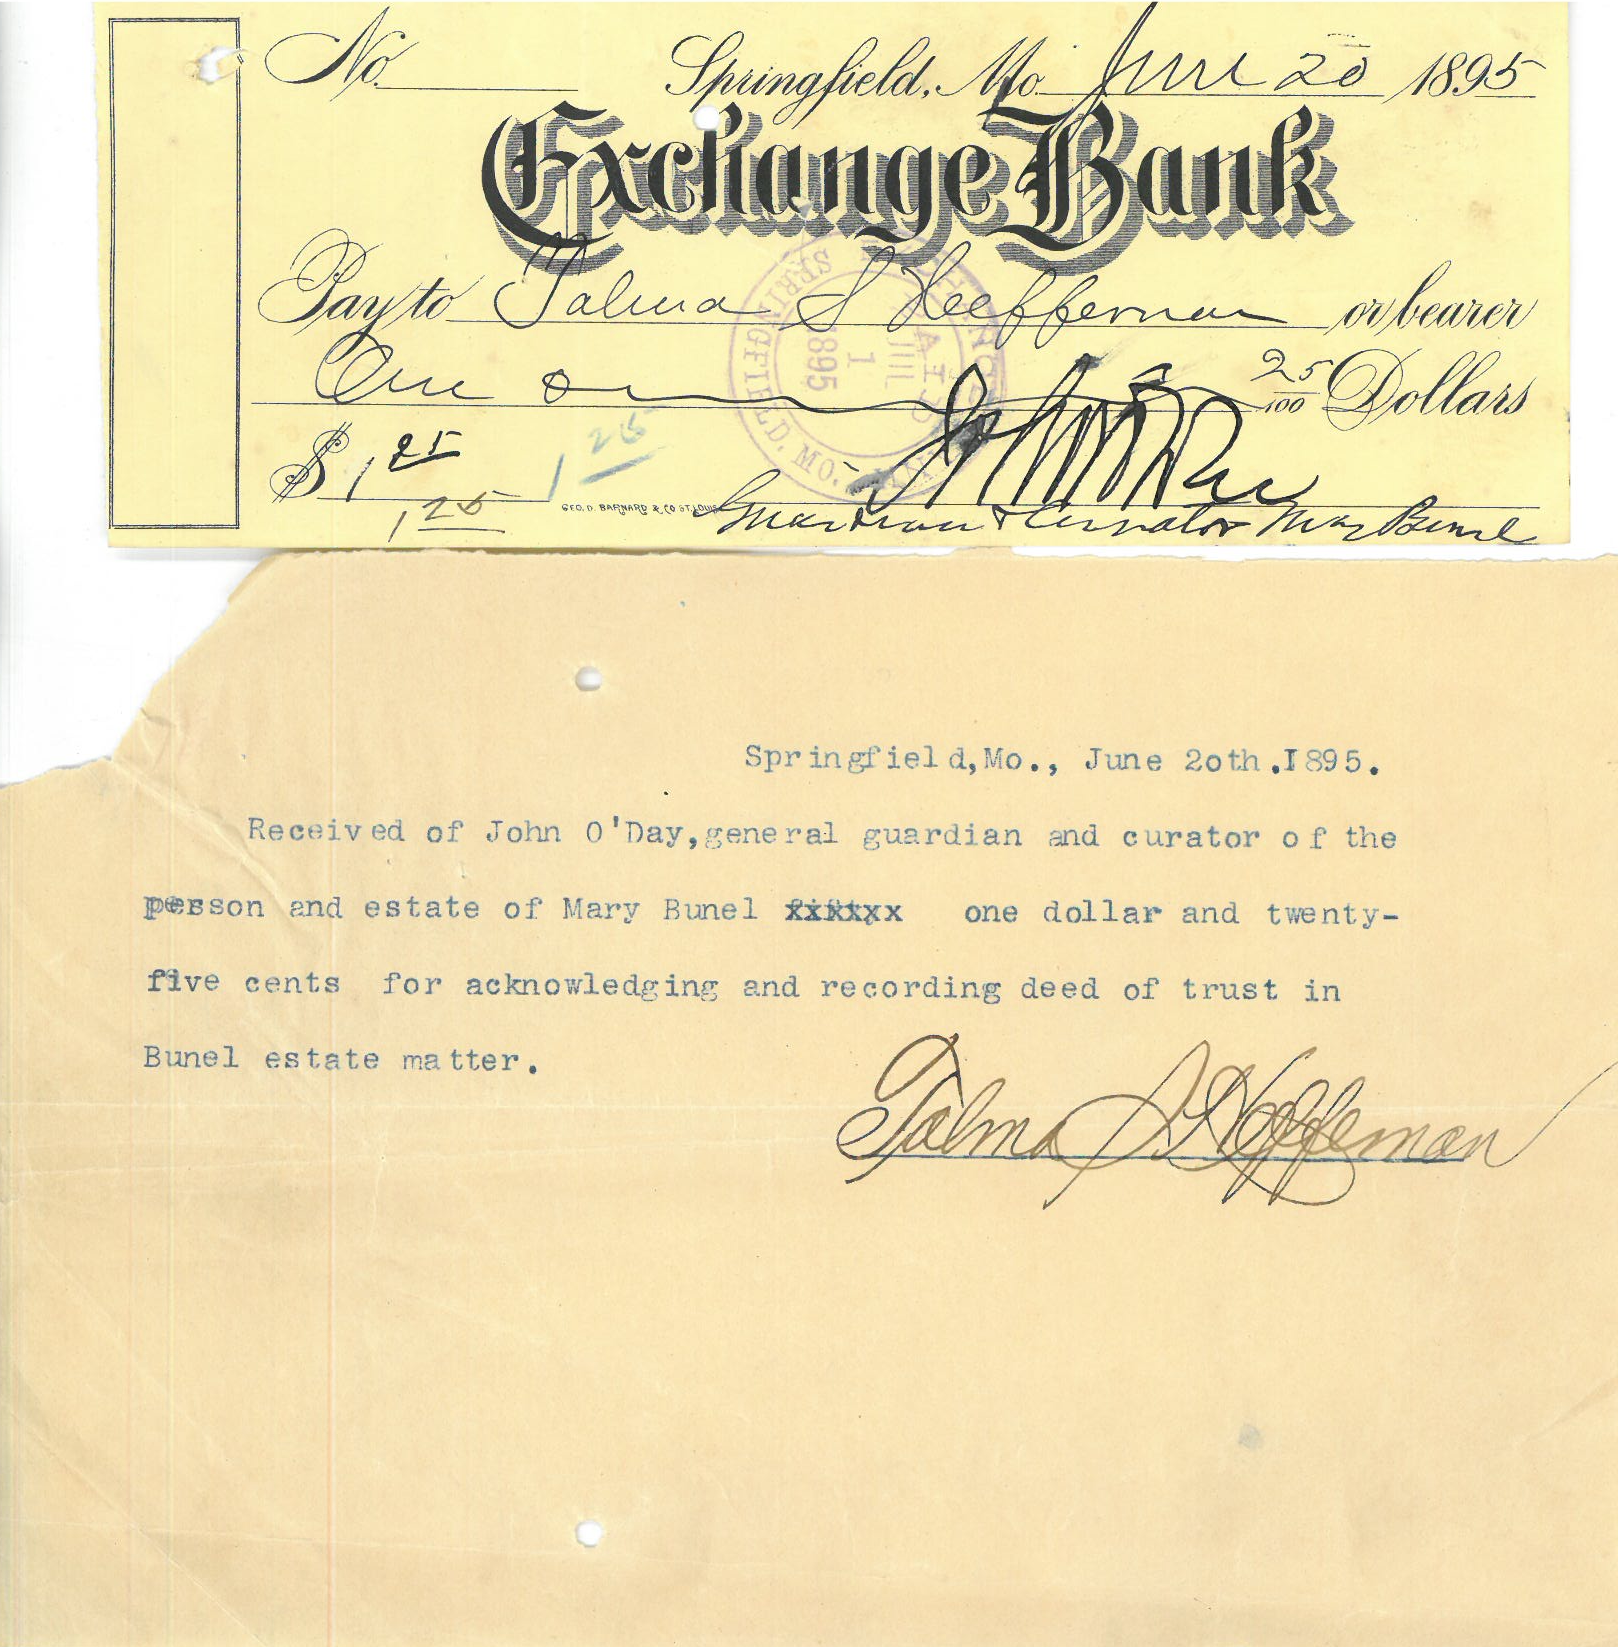 No. Springfield, Mo. June 20 1895
Exchange Bank
Pay to Talma S Heffernan or bearer
One 25/100 Dollars
$ 1 25 1 25
1 25
GEO. D. BARNARD & CO ST. LOUIS
John O'Day
Guardian & Curator Mary Bunel
EXCHANGE BANK
PAID
JUL
1
1895
SPRINGFIELD, MO.
Springfield,Mo., June 2oth.I895.
Received of John O'Day,general guardian and curator of the
person and estate of Mary Bunel xxxxxx one dollar and twenty-
five cents for acknowledging and recording deed of trust in
Bunel estate matter.
Talma S Heffernan